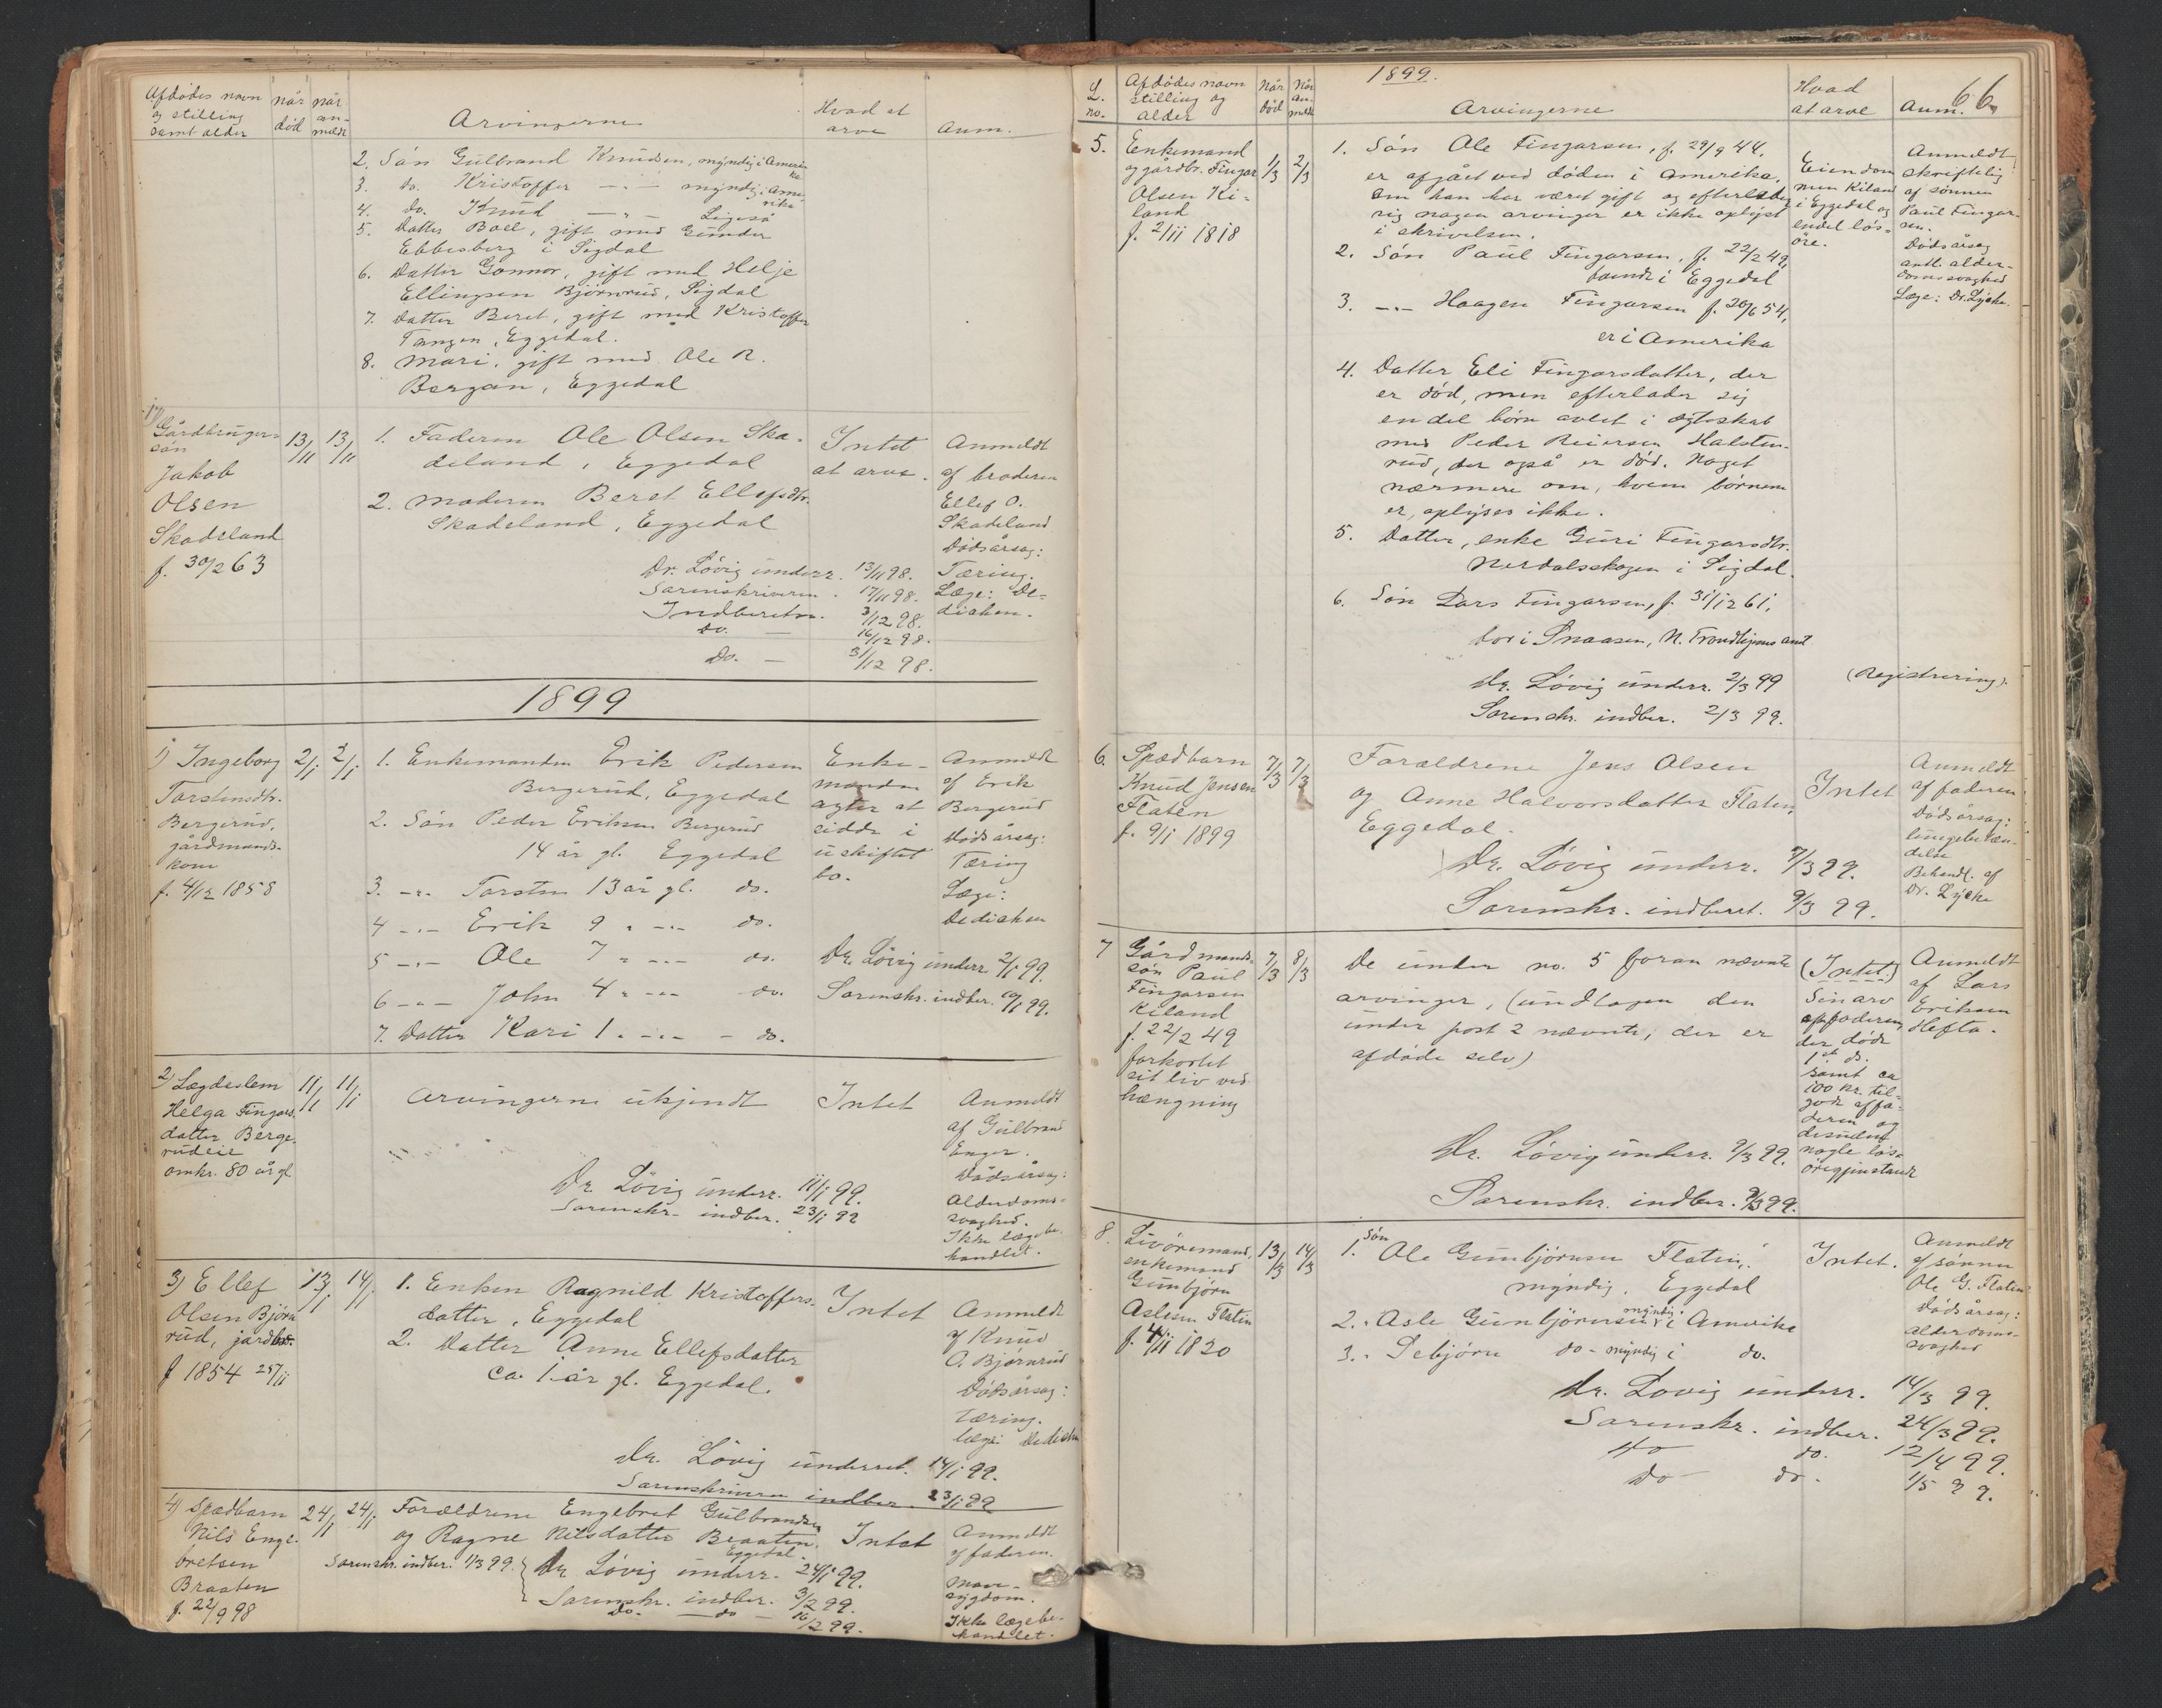 Afdødes navn
og stilling
samt alder
når
død
når
an-
meldt
Arvingerne
Hvad at
arve
Anm.
2. Søn Gulbrand Knudsen, myndig i Amerika
3. do. Kristoffer — " — myndig i Amerika
4. do. Knud — " — Ligeså
5. Datter Boel, gift med Gunder
Ebbesberg i Sigdal
6. Datter Gonnor, gift med Helje
Ellingsen Bjørnrud, Sigdal
7. Datter Beret, gift med Kristoffer
Tangen, Eggedal.
8. Mari, gift med Ole R.
Bergan, Eggedal
17)
Gårdbruger-
søn
Jakob
Olsen
Skadeland
f. 30/2 63
13/11
13/11
1. Faderen Ole Olsen Ska-
deland, Eggedal
2. Moderen Beret Ellefsdtr.
Skadeland, Eggedal
Intet
at arve.
Anmeldt
af broderen
Ellef O.
Skadeland
Dødsårsag:
Tæring.
Læge: De-
dichen.
Dr. Løvig underr. 13/11 98.
Sorenskriveren. 17/11 98.
Indberetn. 3/12 98.
do. — 16/12 98.
Do. — 31/12 98.
1899
1) Ingeborg
Torstensdtr.
Bergerud,
gårdmands-
kone
f. 4/12 1858
2/1
2/1
1. Enkemanden Erik Pedersen
Bergerud, Eggedal
2. Søn Peder Eriksen Bergerud
14 år gl. Eggedal
3. -"- Torsten 13 år gl. do.
4 -"- Erik 9 " -"- do.
5 -"- Ole 7 " -"- do.
6 -"- John 4 " -"- do.
7. Datter Kari 1 " -"- - do.
Enke-
manden
agter at
sidde i
uskiftet
bo.
Anmeldt
af Erik
Bergerud
Dødsårsag:
Tæring
Læge:
Dedichen
Dr. Løvig underr. 2/1 99.
Sorenskr. indber. 10/1 99.
2) Lægdeslem
Helga Fingars-
datter Berge-
rudeie
omkr. 80 år gl.
11/1
11/1
Arvingerne ukjendt
Intet
Anmeldt
af Gulbrand
Enger.
Dødsårsag:
Alderdoms-
svaghed.
Ikke lægebe-
handlet.
Dr. Løvig underr. 11/1 99.
Sorenskr. indber. 23/1 99
3) Ellef
Olsen Bjørn
rud, jardbr.
f 1854 25/11
13/1
14/1
1. Enken Ragnild Kristoffers-
datter, Eggedal
2. Datter Anne Ellefsdatter
ca. 1 år gl. Eggedal.
Intet
Anmeldt
af Knud
O. Bjørnrud
Dødsårsag:
Tæring.
læge: Dedichen
Dr. Løvig underret. 14/1 99.
Sorenskriveren indber. 23/1 99
4) Spædbarn
Nils Enge-
bretsen
Braaten
f. 22/9 98
24/1
24/1
Forældrene Engebret Gulbrandsen
og Ragne Nilsdatter Braaten,
Eggedal.
Intet
Anmeldt
af faderen.
Mave-
sygdom.
Ikke lægebe-
handlet.
Sorenskr. indber. 1/3 99.
Dr. Løvig underr. 24/1 99.
Sorenskr. indber. 3/2 99.
Do. — do — 16/2 99.
66
1899.
L.
no.
Afdødes navn
stilling og
alder
Når
død
Når
an-
meldt
Arvingerne
Hvad
at arve
Anm.
5.
Enkemand
og gårdbr. Fingar
Olsen Ki-
land
f. 2/11 1818
1/3
2/3
1. Søn Ole Fingarsen, f. 29/9 44,
er afgået ved døden i Amerika,
om han har været gift og efterlader
sig nogen arvinger er ikke oplyst
i skrivelsen.
2. Søn Paul Fingarsen, f. 22/2 49,
boende i Eggedal
3. -"- Haagen Fingarsen f. 20/6 54,
er i Amerika
4. Datter Eli Fingarsdatter, der
er død, men efterlader sig
en del børn avlet i ægteskab
med Peder Reiersen Halsten-
rud, der også er død. Noget
nærmere om, hvem børnene
er, oplyses ikke.
5. Datter, enke Guri Fingarsdtr.
Nerdalsskogen i Sigdal.
6. Søn Lars Fingarsen, f. 31/12 61,
bor i Snaasen, N. Trondhjems amt
Eiendom
men Kiland
i Eggedal og
endel løs-
øre.
Anmeldt
skriftelig
af sønnen
Paul Fingar-
sen.
Dødsårsag
antl. alder-
domssvaghed
Læge: Dr. Lyche.
Dr. Løvig underr. 2/3 99
(Registrering).
Sorenskr. indber. 2/3 99.
6.
Spædbarn
Knud Jensen
Flaten
f. 9/1 1899
7/3
7/3
Forældrene Jens Olsen
og Anne Halvorsdatter Flaten,
Eggedal.
Intet
Anmeldt
af faderen
Dødsårsag:
lungebetæn-
delse
Behandl. af
Dr. Lyche
Dr. Løvig underr. 7/3 99.
Sorenskr. indberet. 9/3 99.
7
Gårdmands-
søn Paul
Fingarsen
Kiland
f. 22/2 49
forkortet
sit liv ved
hængning
7/3
8/3
De under no. 5 foran nævnte
arvinger, (undtagen den
under post 2 nævnte, der er
afdøde selv)
(Intet.)
Sin arv
ep. faderen,
der døde
1ste ds.
samt ca
100 kr. til-
gode af fa-
deren og
desuden
nogle løs-
øregjenstande
Anmeldt
af Lars
Eriksen
Hefta.
Dr. Løvig underr. 9/3 99.
Sorenskr. indber. 9/3 99.
8.
Livøremand,
enkemand
Gunbjørn
Aslesen Flaten
f. 4/11 1820
13/3
14/3
1. Søn Ole Gunbjørnsen Flaten,
myndig, Eggedal
2. " Asle Gunbjørnsen, myndig, i Amerika
3. " Sebjørn do - myndig i do.
Intet.
Anmeldt
af sønnen
Ole G. Flaten
Dødsårsag:
alderdoms-
svaghed
Dr. Løvig underr. 14/3 99.
Sorenskr. indber. 24/3 99.
do do. 12/4 99.
do - do - 1/5 99.